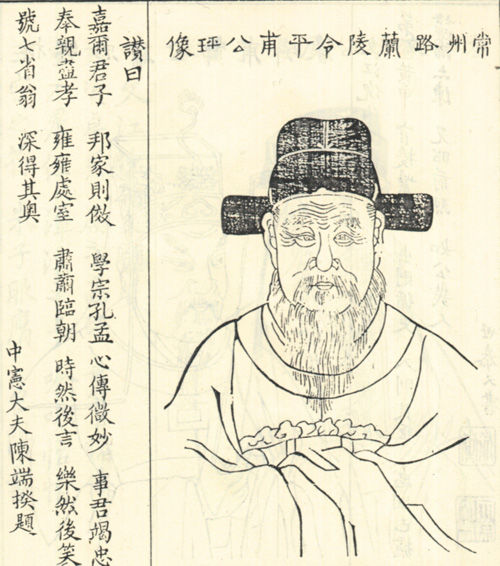 常州路蘭陵令平甫公玶像
讚曰
嘉爾君子 邦家則傚 學宗孔孟 心傳微妙 事君竭忠
奉親盡孝 雍雍處室 肅肅臨朝 時然後言 樂然後笑
號七省翁 深得其奧
中憲大夫陳端揆題